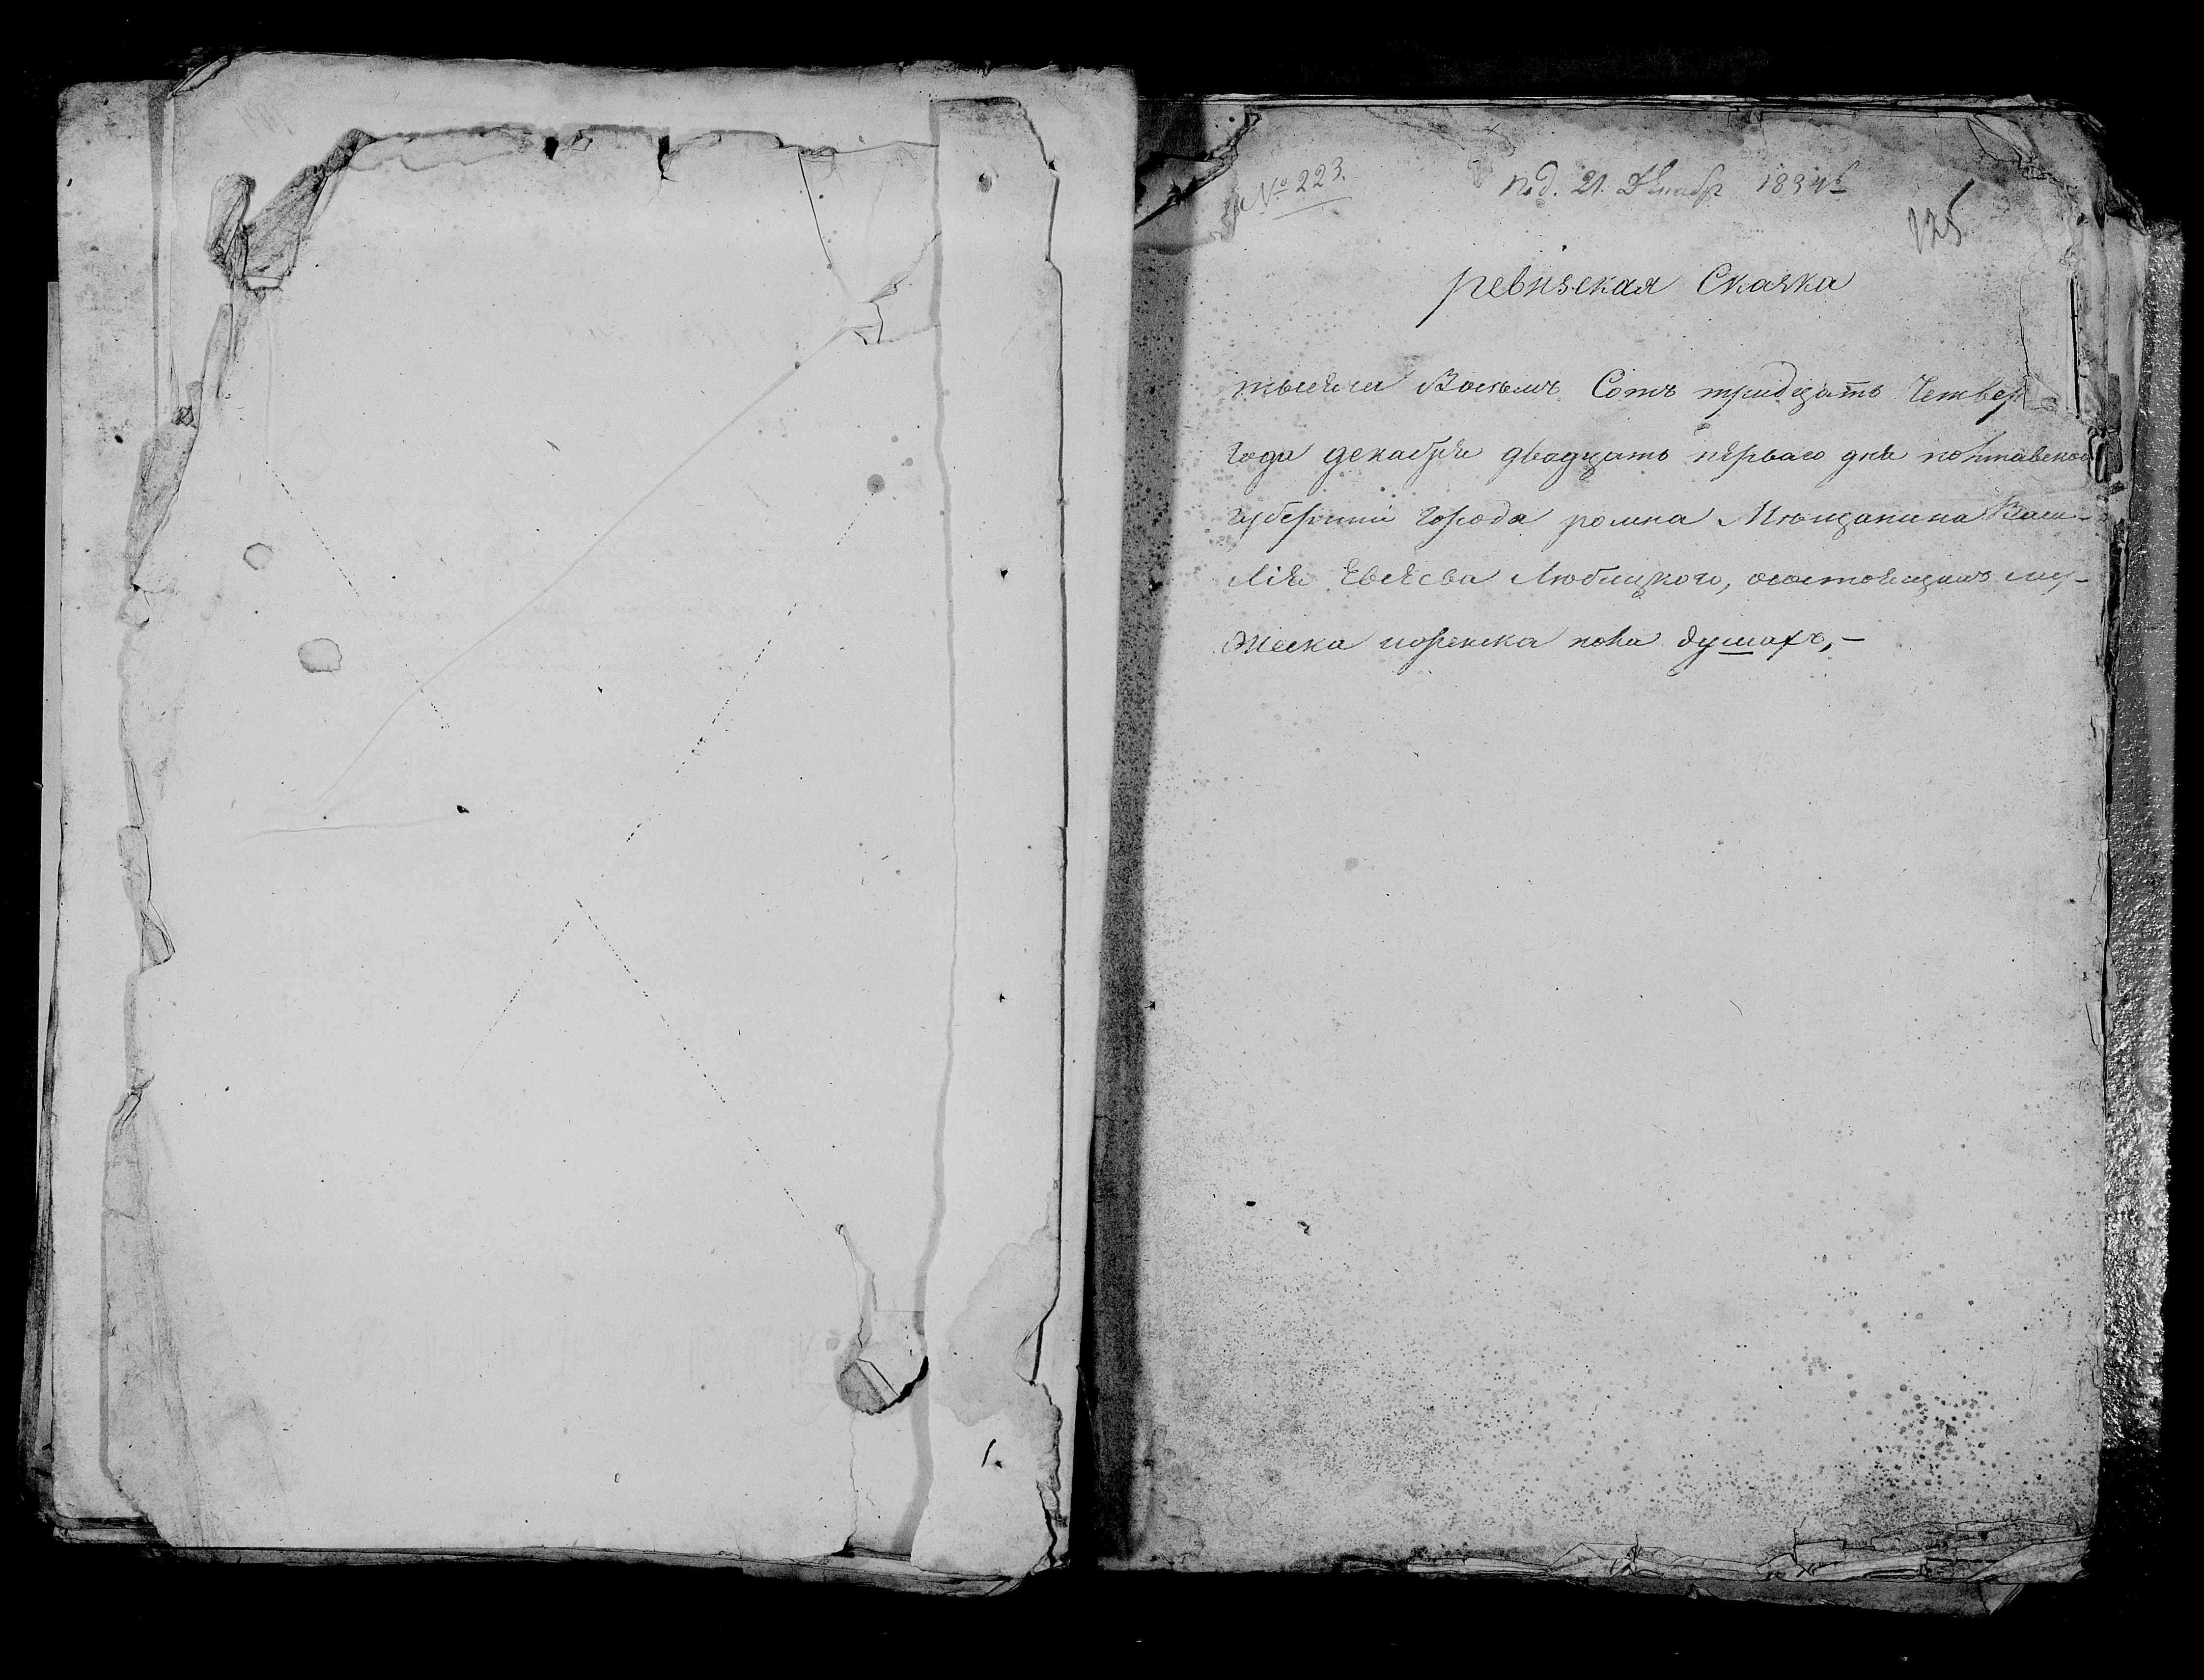 № 223.
под. 21. Декабр 1834
125
ревизская Скаска
тысяча Восемъ Сотъ тридцать Четвер
года декабря двадцать перваго дня полтавской
губерниі города ромна Мѣщанина Васи-
лія Люблицкого, осостоящихъ му-
жеска иженска пола душахъ,-